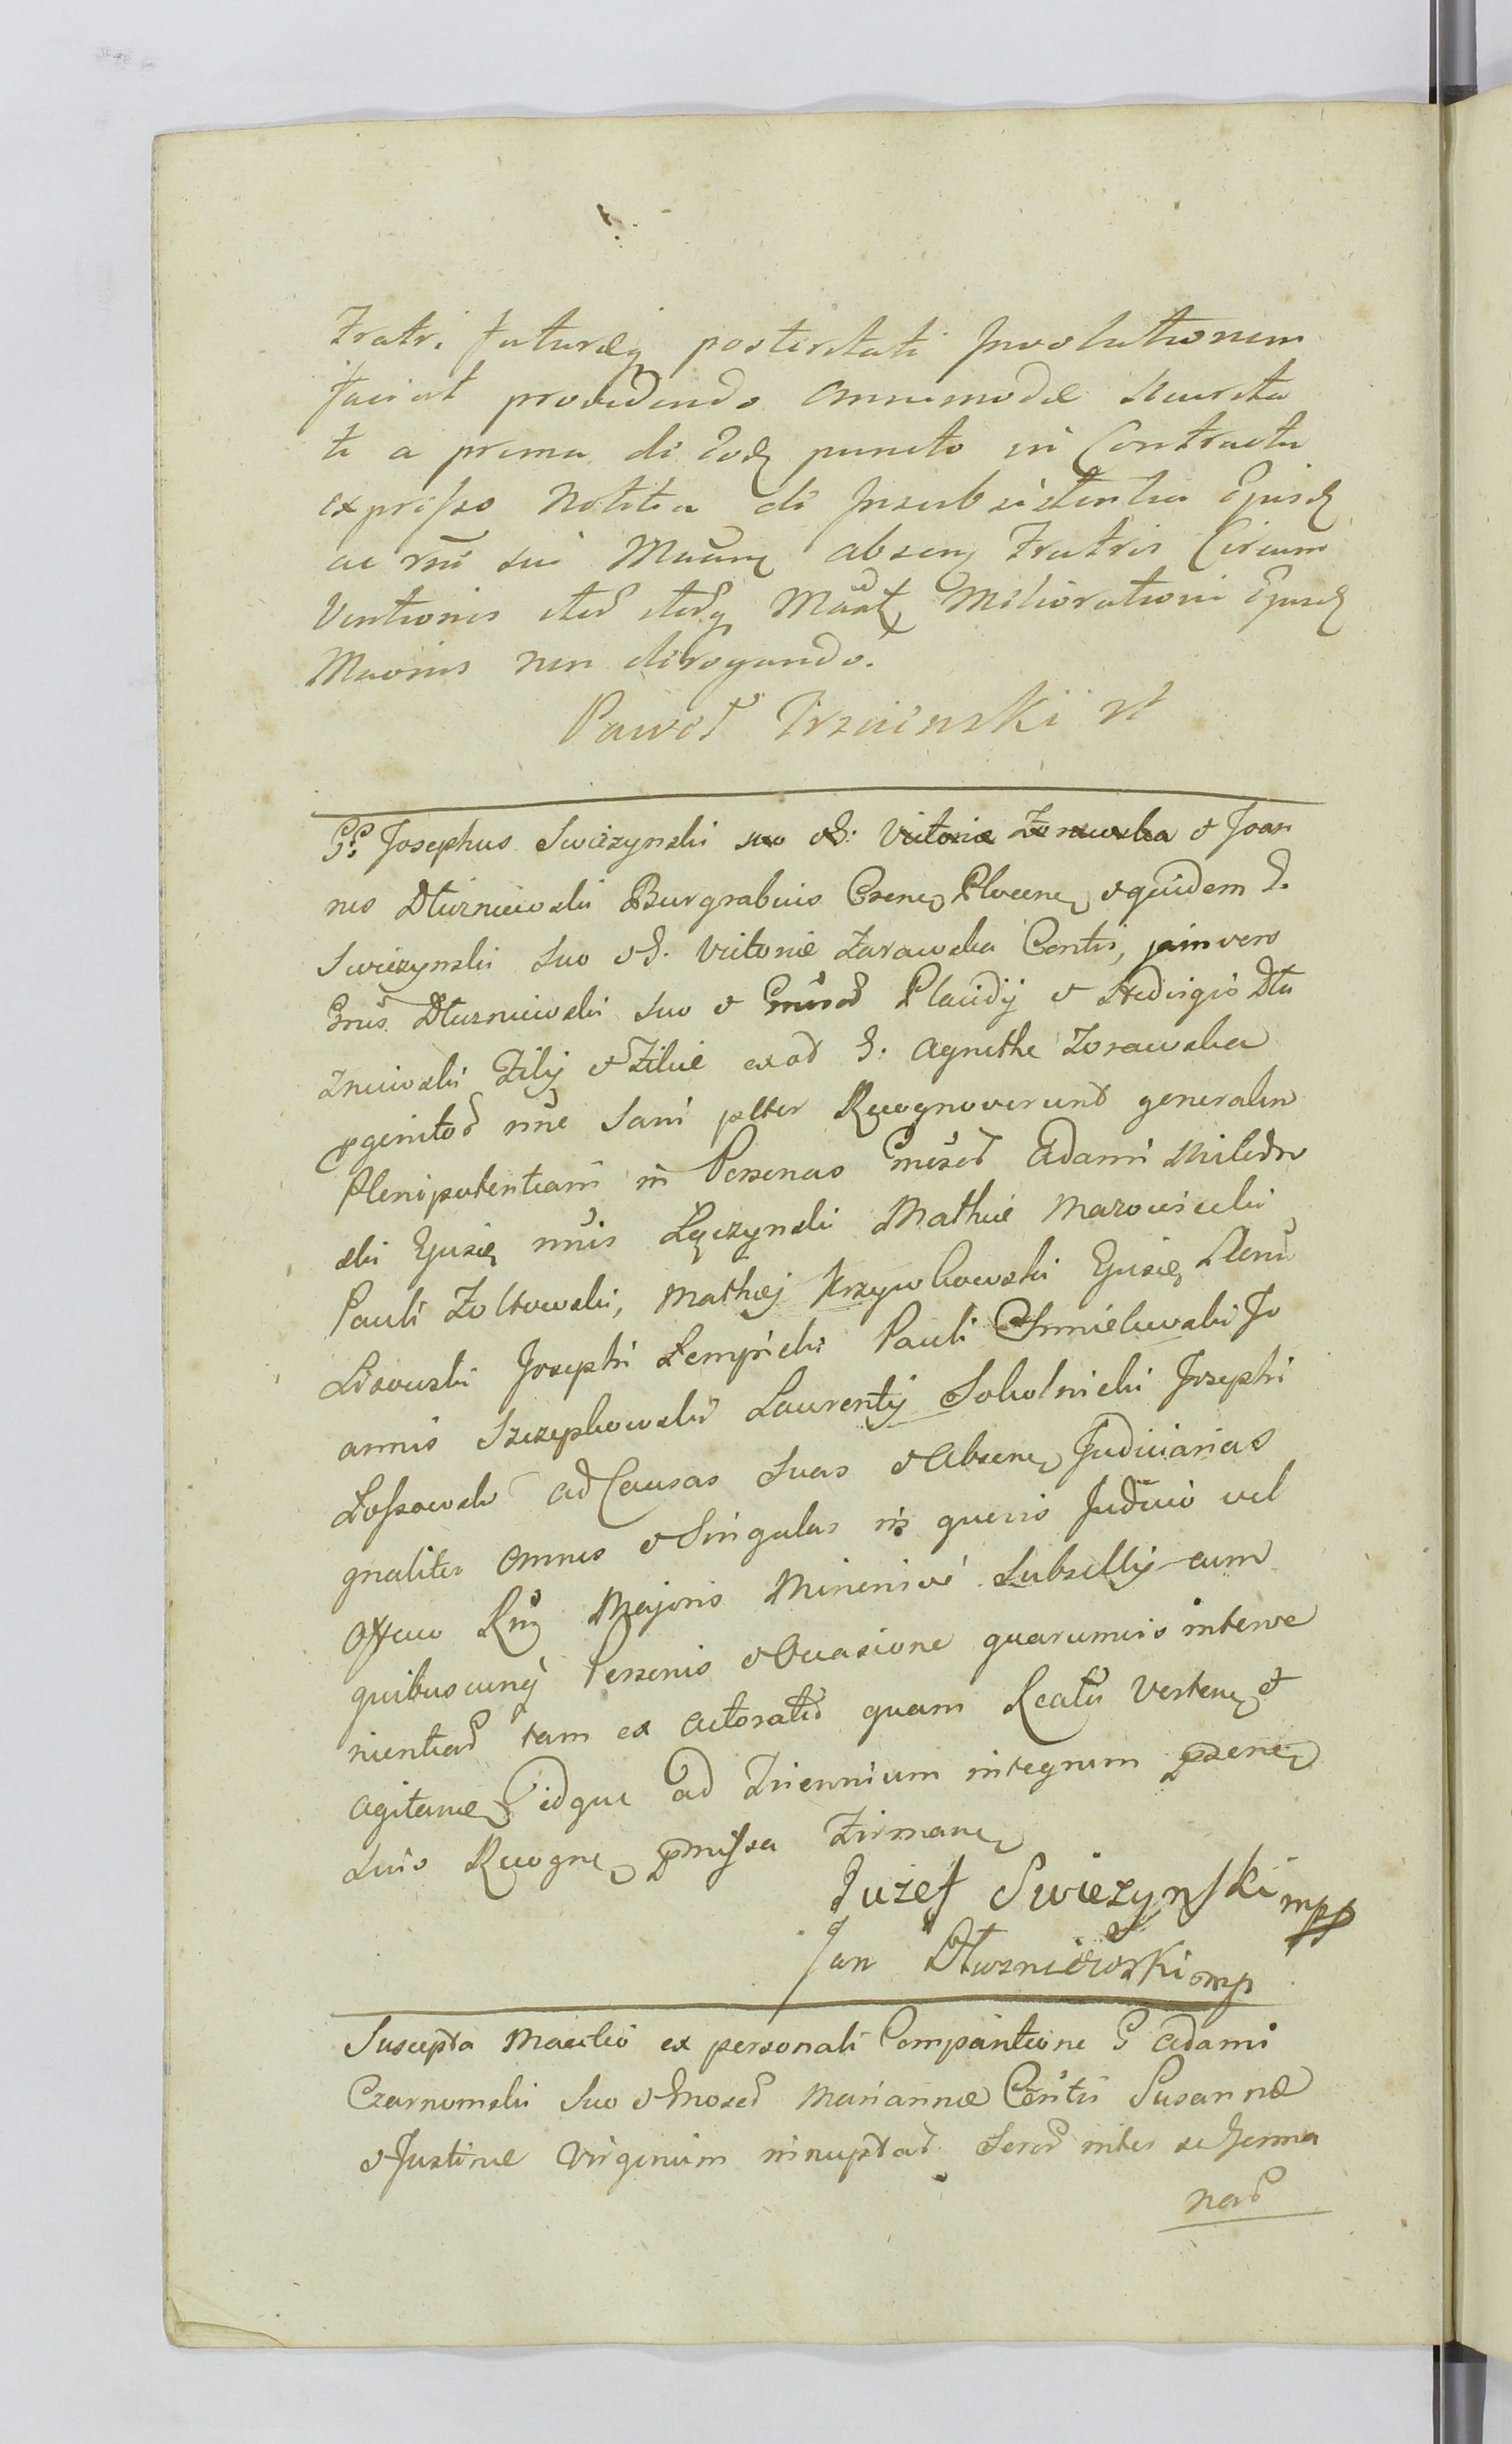 Fratri futuræq posteritati Involutionem
faciat providendo omnimodæ securita
ti a prima de Eodꝫ puncto in Contractu
expresso Notitia de Insubsistentia Ejusdꝫ
ac rñe sui Mucunꝫ absenꝫ Fratris Circum
ventionis Melioratione Ejusdꝫ
Mãonis non derogando.
Paweł Trzcinski
GG Josephus Swiezynski suo et G. Victoriæ Zorawska et Joan
nes Dłuzniewski Burgrabius Csenꝫ Plocenꝫ et quidem G.
Swiezynski suo et G. Victoriæ Zorawska Contis, jam vero
Gnüs Dłuzniewski suo et Gnüsoꝝ Placidij et Hedvigis Dłu
zniewski Filij et Filiæ ex od G. Agnethe Zorawska
pgenitoꝝ nñe Sani palter Recognoverunt generalem
Plenipotentiam in Personas Gnrosoꝝ Adami Milews
ski Ejusiꝫ nñis Łęczynski Mathiæ Mazowiecki
Pauli Zołtowski, Mathiæ Krzywkowski Ejusiꝫ
Lisowski Josephi Łempicki Pauli Chmielewski Jo
annis Szczepkowski Laurentij Sokolnicki Josephi
Lossowski ad Causas Suas et Absenꝫ Judiciarias
gnaliter Omnes et Singulas in quovis Judicio vel
Officio Rnꝫ Majoris Minorisve Subsellij cum
quibuscunqꝫ Personis et Occasione quarumvis interve
nientiaꝝ tam ex Actoratu quam Reatu Vertenꝫ et
Agitanꝫ idque ad Triennium integrum psenꝫ
Suis Recognꝫ pmissa Firmanꝫ
Juzef Swiezynski mpp
Jan Dłuzniewski mp
Suscepta Manlis ex personali Comparitione G Adami
Czarnomski Suo et Gnosaꝝ Mariannæ Contis Susannæ
et Justinæ Virginum innuptaꝝ Soroꝝ inter se Germa
naꝝ